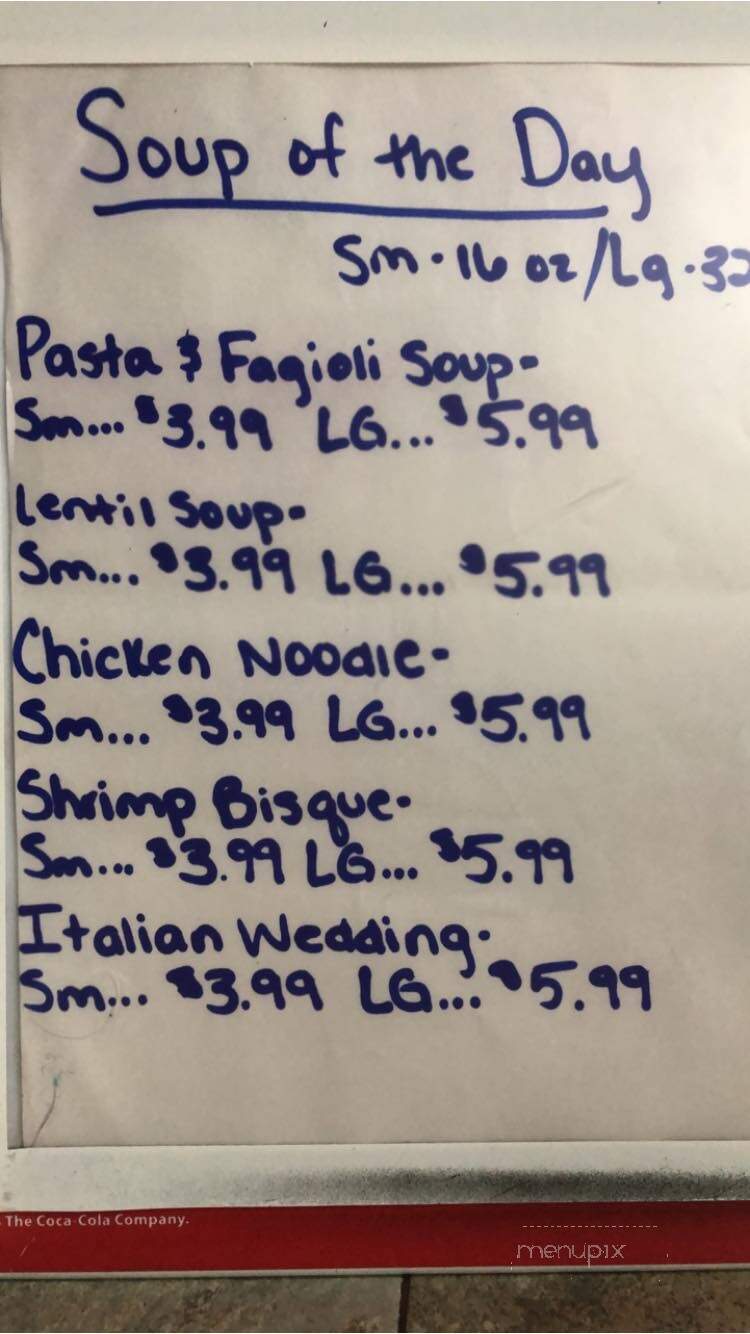 Soup of the Day
Sm · 16 oz / Lg · 32
Pasta & Fagioli Soup-
Sm... $3.99 LG... $5.99
Lentil Soup-
Sm... $3.99 LG... $5.99
Chicken Noodle-
Sm... $3.99 LG... $5.99
Shrimp Bisque-
Sm... $3.99 LG... $5.99
Italian Wedding-
Sm... $3.99 LG... $5.99
The Coca-Cola Company.
menupix